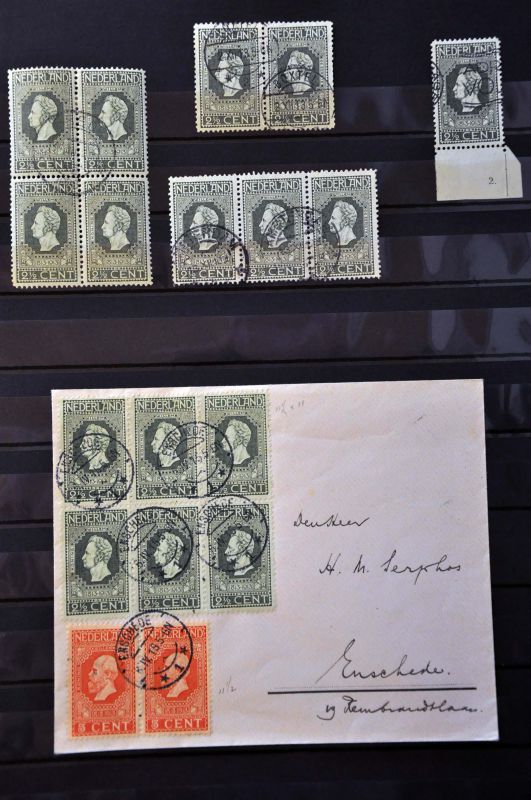 NEDERLAND NEDERLAND
2½ CENT 2½ CENT
NEDERLAND NEDERLAND
2½ CENT 2½ CENT
NEDERLAND NEDERLAND
2½ CENT 2½ CENT
NEDERLAND NEDERLAND NEDERLAND
2½ CENT 2½ CENT 2½ CENT
NEDERLAND
2½ CENT
2.
NEDERLAND NEDERLAND NEDERLAND
2½ CENT 2½ CENT 2½ CENT
NEDERLAND NEDERLAND NEDERLAND
2½ CENT 2½ CENT 2½ CENT
ENSCHEDE
ENSCHEDE
ENSCHEDE
ENSCHEDE
ENSCHEDE
NEDERLAND NEDERLAND
5 CENT 5 CENT
11½
Den Heer
H. M. Serphos
Enschede.
Rembrandtlaan